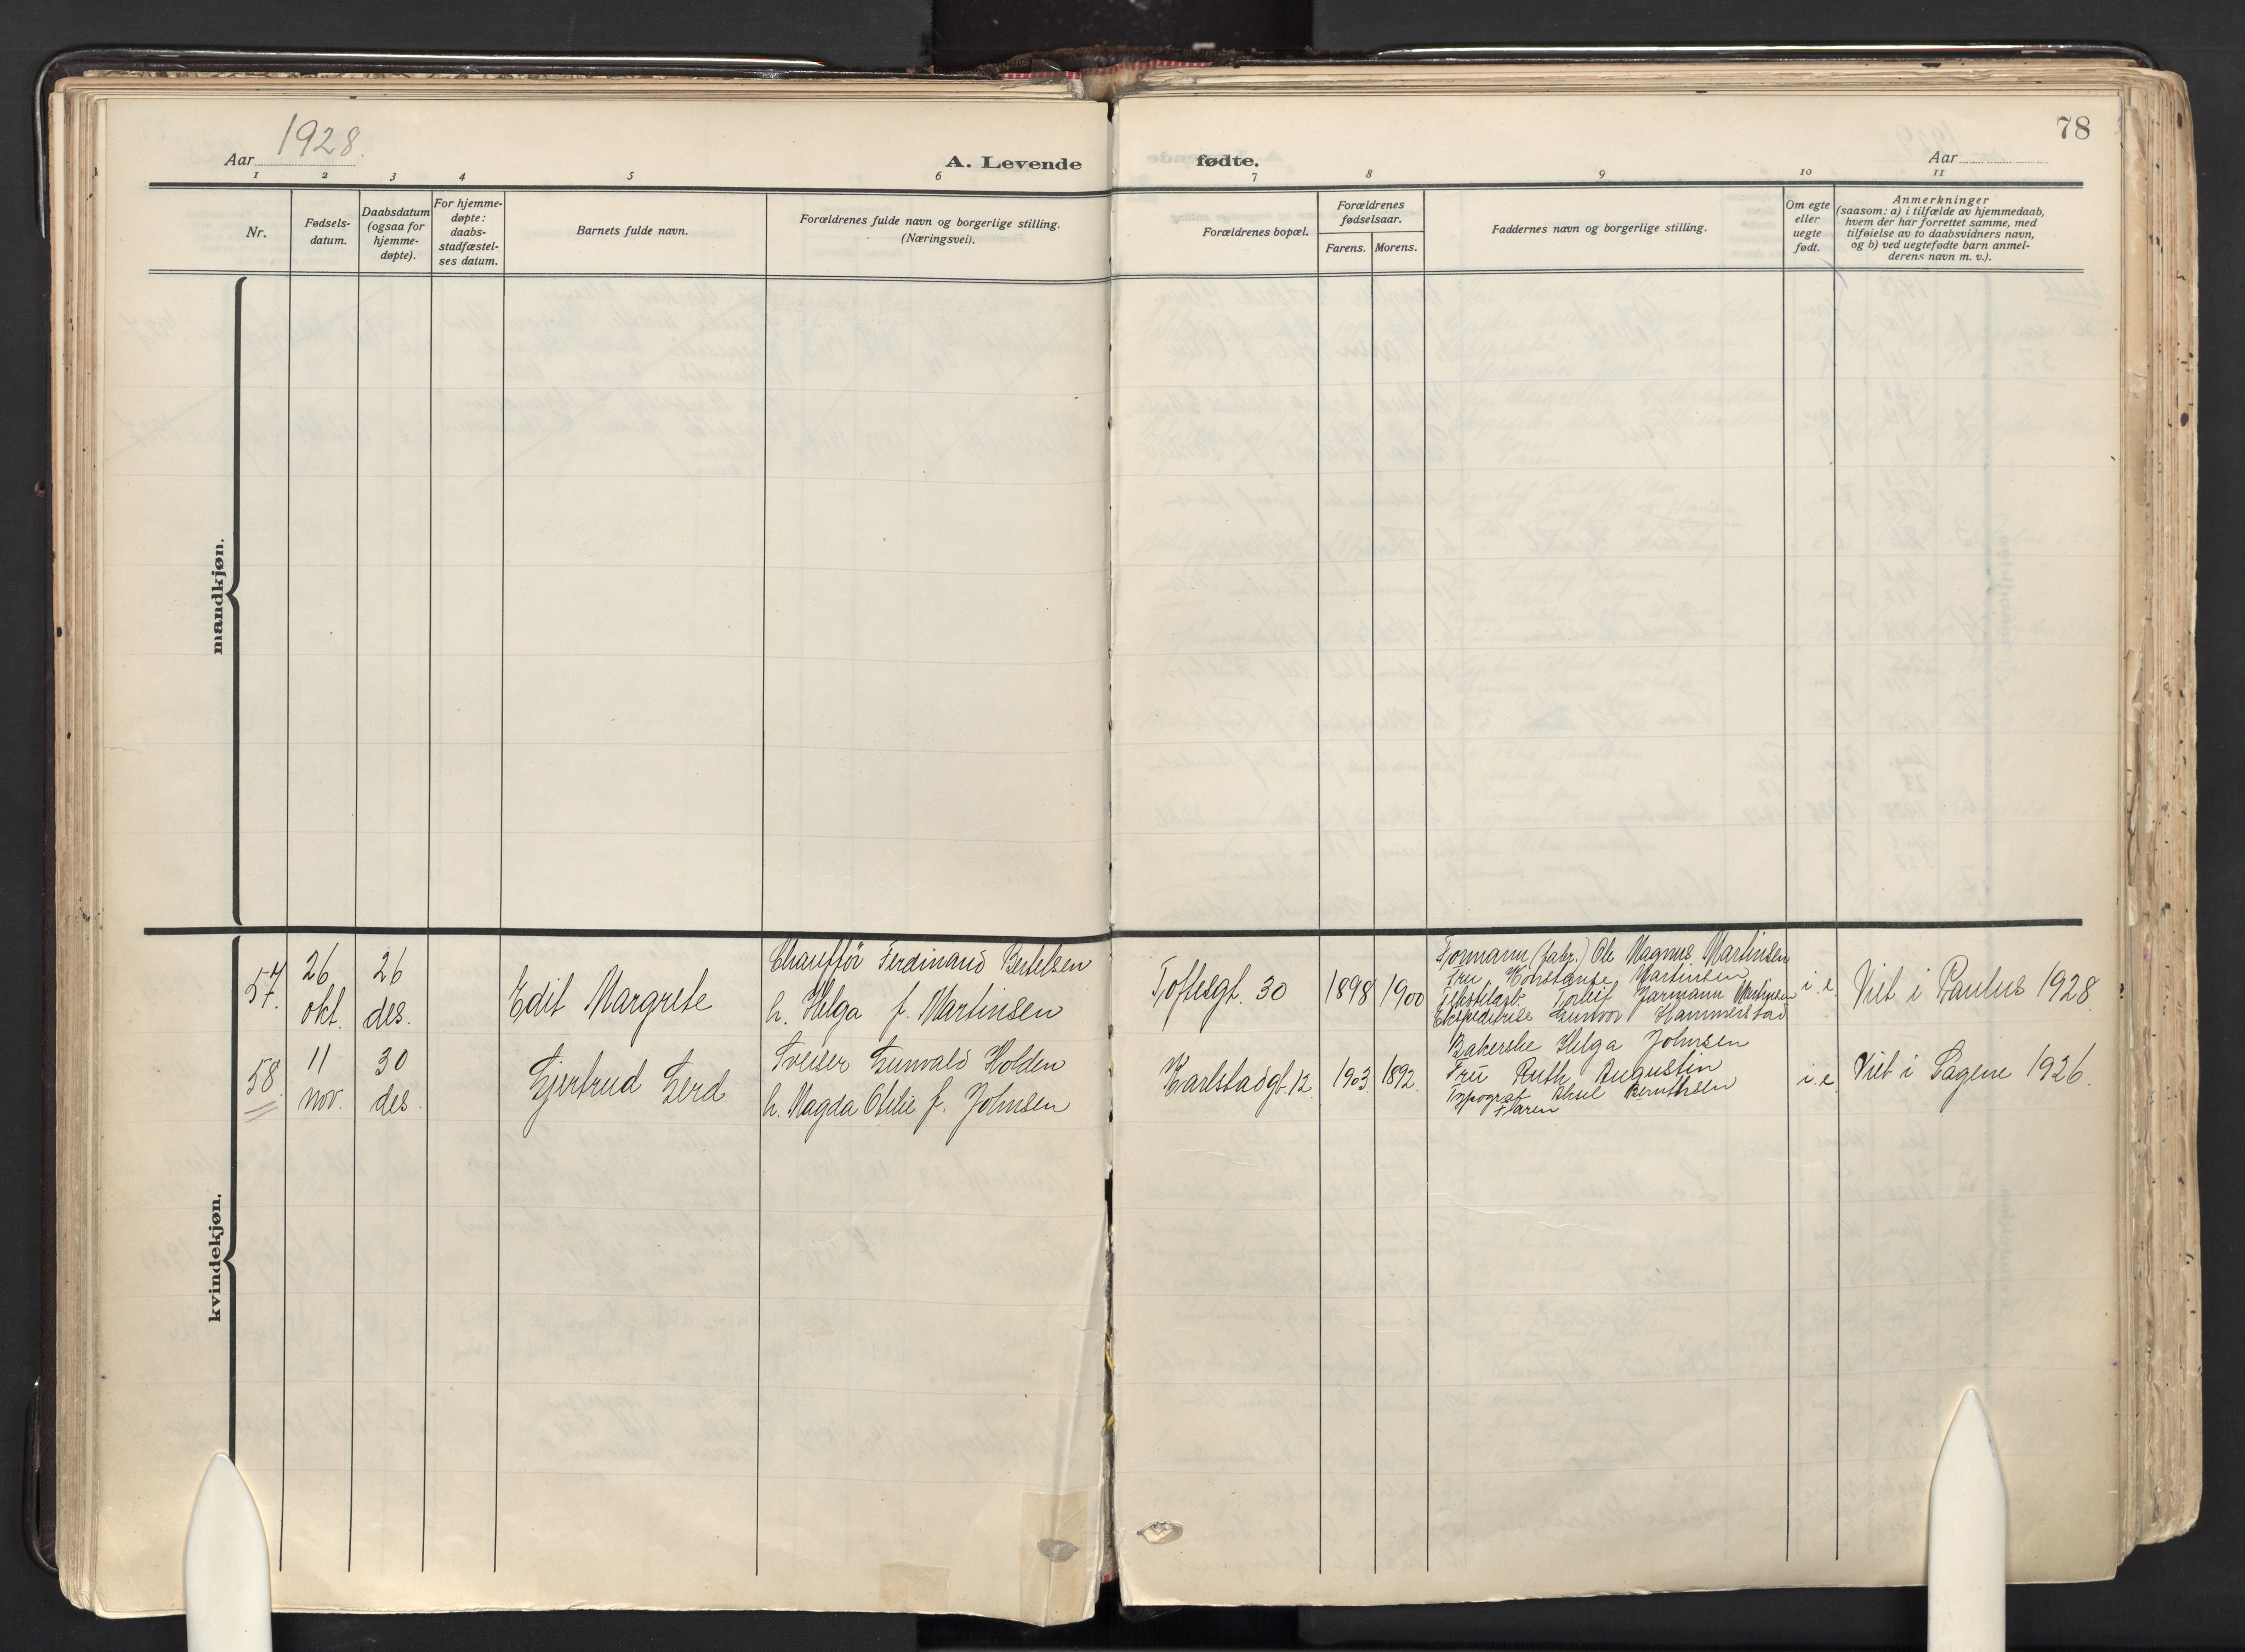 78
Aar 1928.
A. Levende
fødte.
Aar
1 2 3 4 5 6 7 8 9 10 11
Nr.
Fødsels-
datum.
Daabsdatum
(ogsaa for
hjemme-
døpte).
For hjemme-
døpte:
daabs-
stadfæstel-
ses datum.
Barnets fulde navn.
Forældrenes fulde navn og borgerlige stilling.
(Næringsvei).
Forældrenes bopæl.
Forældrenes
fødselsaar.
Farens. Morens.
Faddernes navn og borgerlige stilling.
Om egte
eller
uegte
født.
Anmerkninger
(saasom: a) i tilfælde av hjemmedaab,
hvem der har forrettet samme, med
tilføielse av to daabsvidners navn,
og b) ved uegtefødte barn anmel-
derens navn m. v.).
mandkjøn.
kvindekjøn.
57.
26
okt.
26
des.
Edit Margrete
Chaufför Ferdinand Bertelsen
h. Helga f. Martinsen
Toftesgt. 30
1898
1900
Formann (fabr.) Ole Magnus Martinsen
Fru Konstanse Martinsen
Torleif Jarmann Martinsen
Ekspeditrise Gunvor Hammerstad
i. e.
Viet i Paulus 1928.
58.
11
nov.
30
des.
Gjertrud Gerd
Sveiser Gunvald Holden
h. Magda Otilie f. Johnsen
Karlstadgt. 12.
1903.
1892.
Bakerske Helga Johnsen
Fru Ruth Augustin
Typograf Bernthsen
Faren
i. e.
Viet i Sagene 1926.